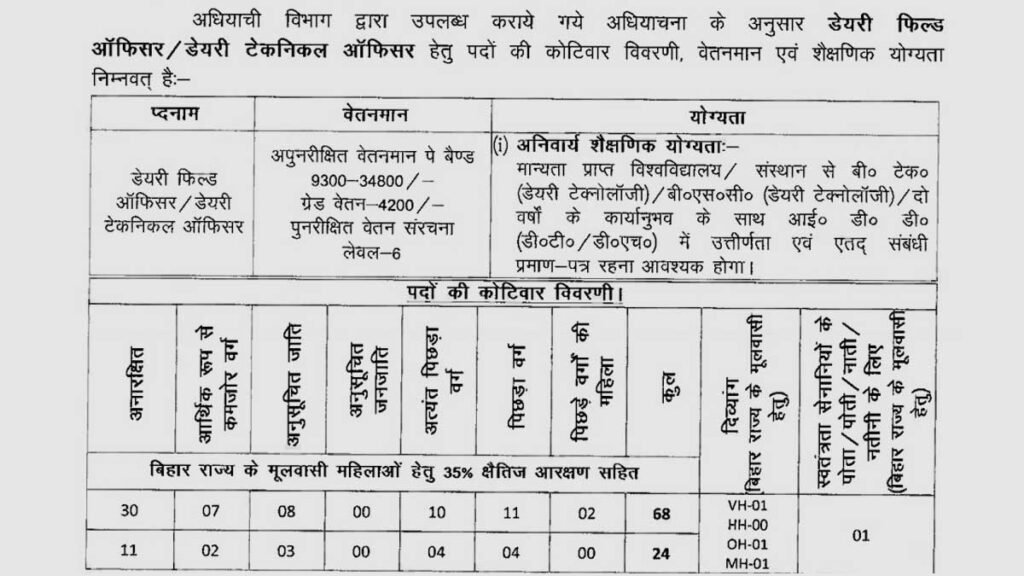 अधियाची विभाग द्वारा उपलब्ध कराये गये अधियाचना के अनुसार डेयरी फिल्ड
ऑफिसर/डेयरी टेकनिकल ऑफिसर हेतु पदों की कोटिवार विवरणी, वेतनमान एवं शैक्षणिक योग्यता
निम्नवत् हैः–
पदनाम
वेतनमान
योग्यता
डेयरी फिल्ड
ऑफिसर/डेयरी
टेकनिकल ऑफिसर
अपुनरीक्षित वेतनमान पे बैण्ड
9300–34800/–
ग्रेड वेतन–4200/–
पुनरीक्षित वेतन संरचना
लेवल–6
(i) अनिवार्य शैक्षणिक योग्यताः–
मान्यता प्राप्त विश्वविद्यालय/ संस्थान से बी० टेक०
(डेयरी टेक्नोलॉजी)/बी०एस०सी० (डेयरी टेक्नोलॉजी)/दो
वर्षों के कार्यानुभव के साथ आई० डी० डी०
(डी०टी०/डी०एच०) में उत्तीर्णता एवं एतद् संबंधी
प्रमाण–पत्र रहना आवश्यक होगा।
पदों की कोटिवार विवरणी।
अनारक्षित
आर्थिक रूप से
कमजोर वर्ग
अनुसूचित जाति
अनुसूचित
जनजाति
अत्यंत पिछड़ा
वर्ग
पिछड़ा वर्ग
पिछड़े वर्गों की
महिला
कुल
दिव्यांग
(बिहार राज्य के मूलवासी
हेतु)
स्वतंत्रता सेनानियों के
पोता/पोती/नाती/
नतीनी के लिए
(बिहार राज्य के मूलवासी
हेतु)
बिहार राज्य के मूलवासी महिलाओं हेतु 35% क्षैतिज आरक्षण सहित
30 07 08 00 10 11 02 68
11 02 03 00 04 04 00 24
VH-01
HH-00
OH-01
MH-01
01